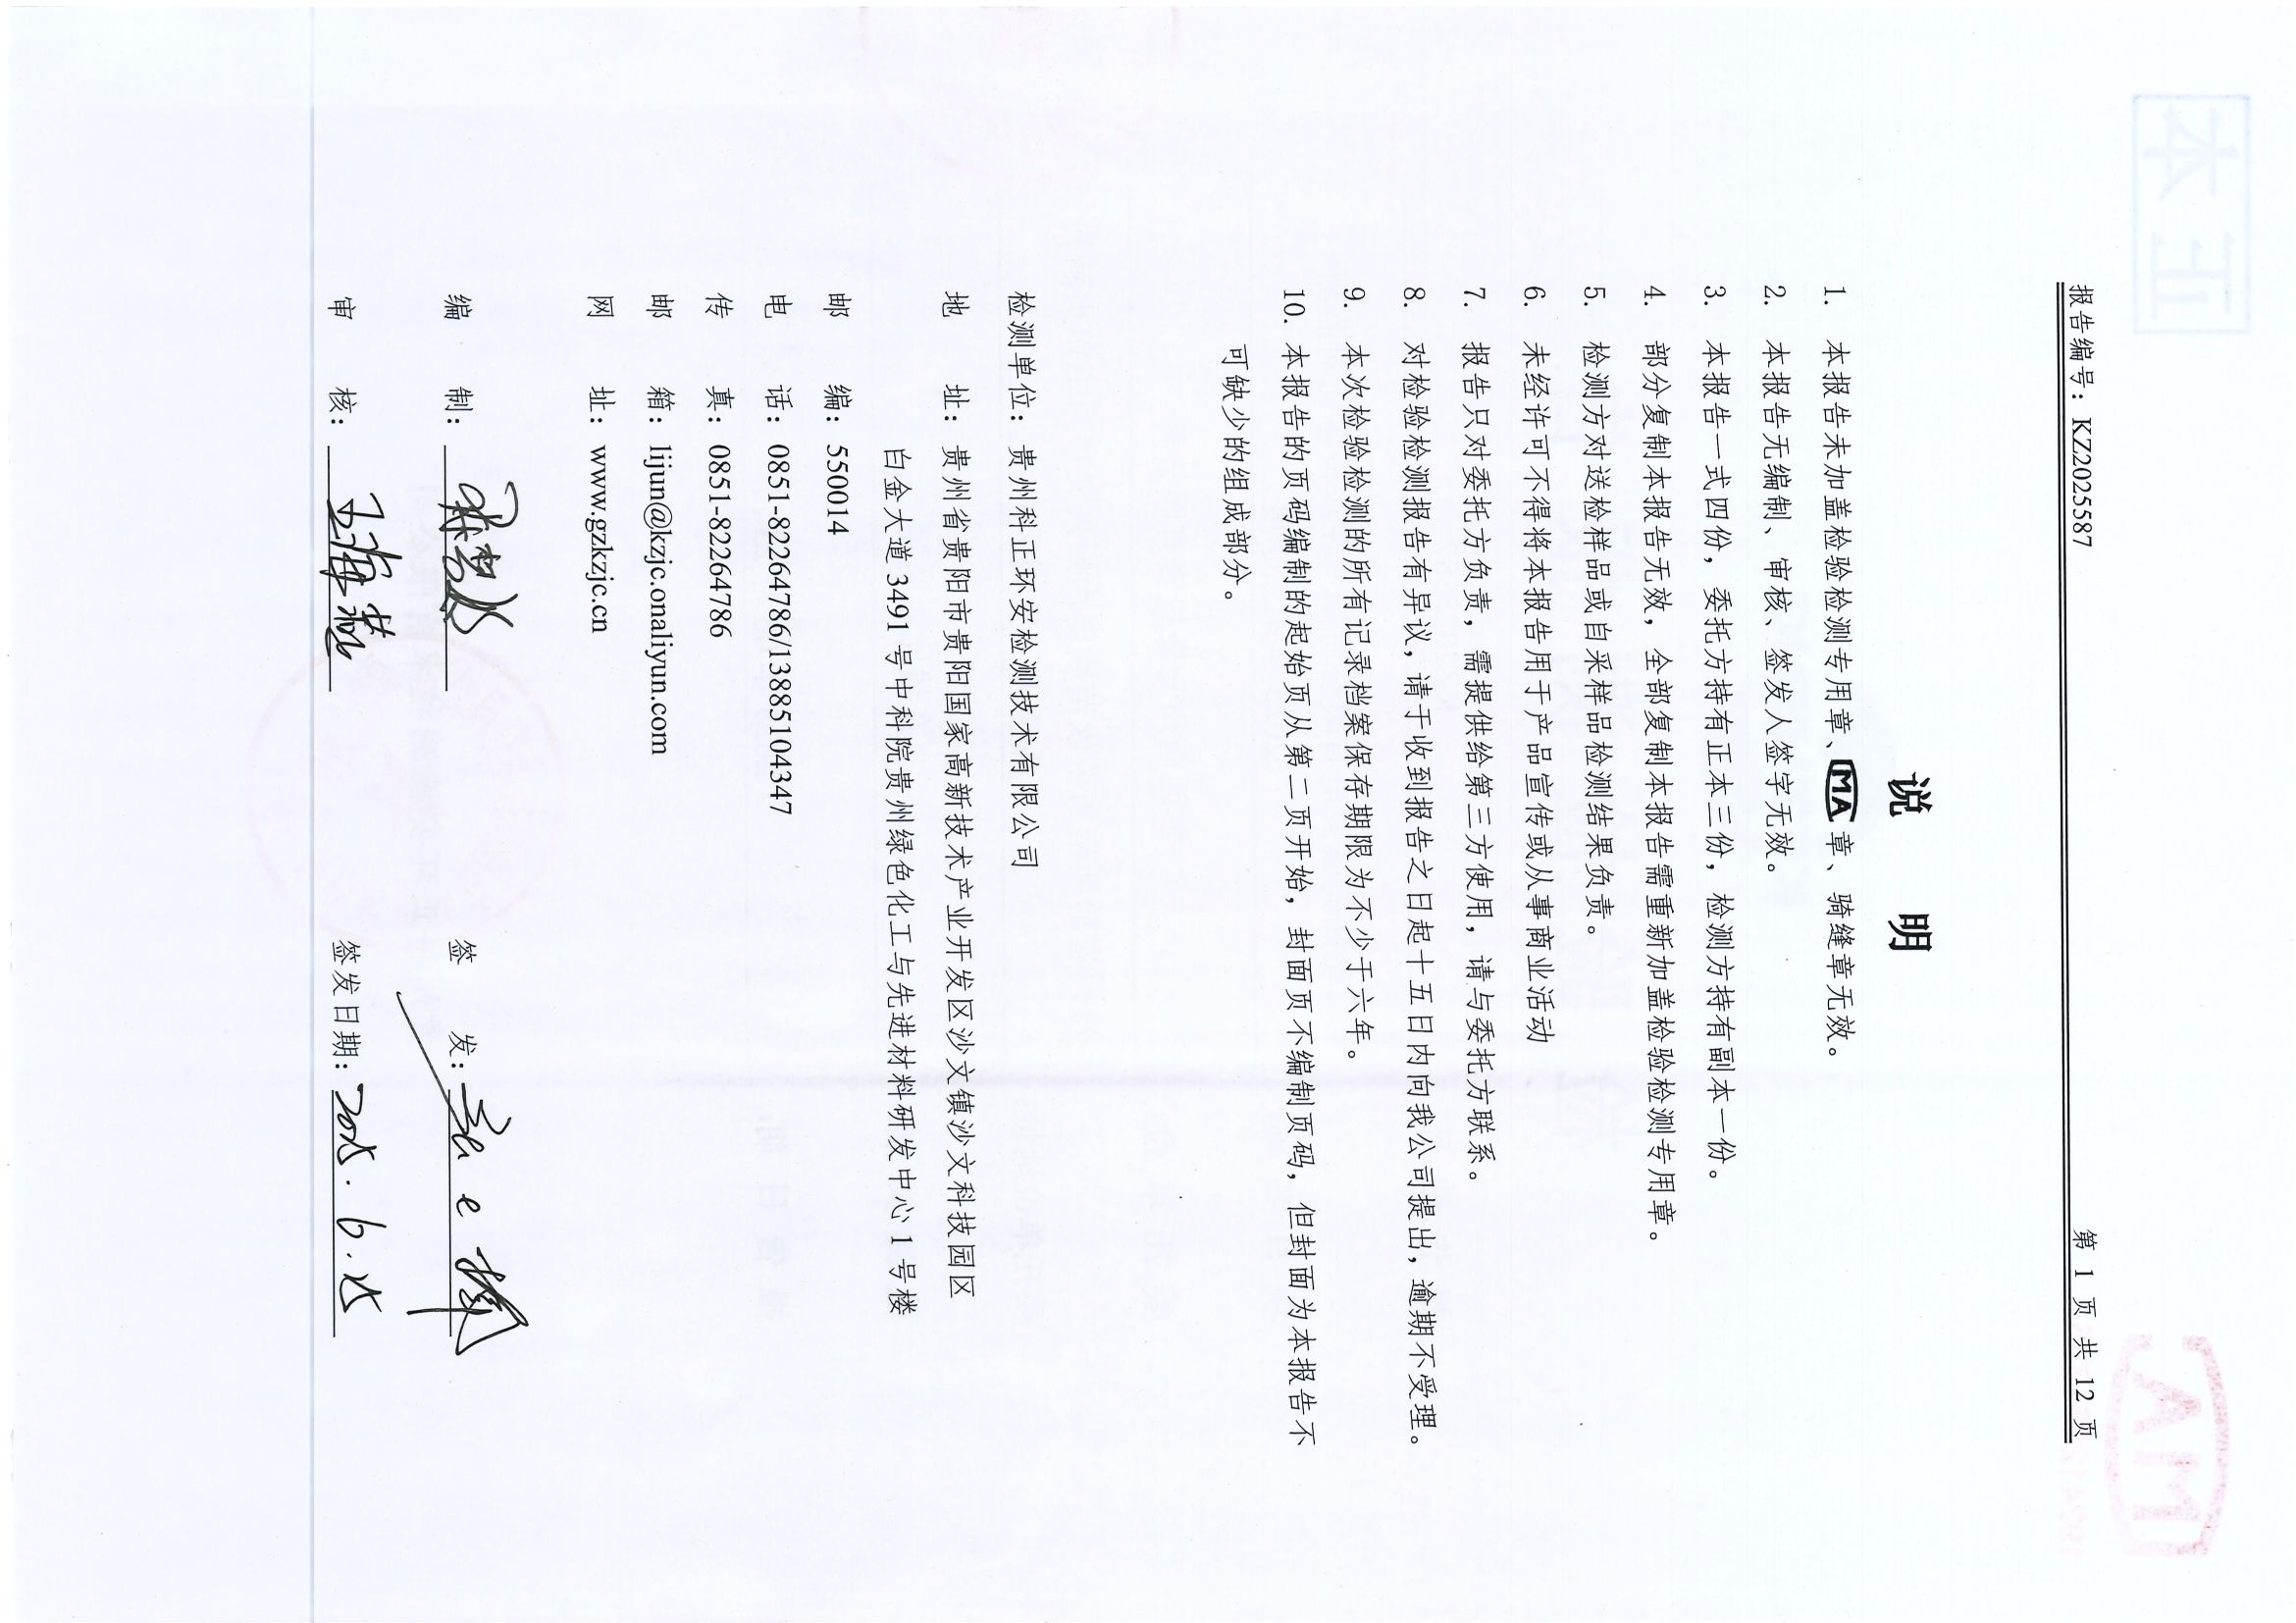 报告编号：KZ2025587
第 1 页 共 12 页
说 明
1. 本报告未加盖检验检测专用章、MA章、骑缝章无效。
2. 本报告无编制、审核、签发人签字无效。
3. 本报告一式四份，委托方持有正本三份，检测方持有副本一份。
4. 部分复制本报告无效，全部复制本报告需重新加盖检验检测专用章。
5. 检测方对送检样品或自采样品检测结果负责。
6. 未经许可不得将本报告用于产品宣传或从事商业活动
7. 报告只对委托方负责，需提供给第三方使用，请与委托方联系。
8. 对检验检测报告有异议，请于收到报告之日起十五日内向我公司提出，逾期不受理。
9. 本次检验检测的所有记录档案保存期限为不少于六年。
10. 本报告的页码编制的起始页从第二页开始，封面页不编制页码，但封面为本报告不
可缺少的组成部分。
检测单位：贵州科正环安检测技术有限公司
地 址：贵州省贵阳市贵阳国家高新技术产业开发区沙文镇沙文科技园区
白金大道 3491 号中科院贵州绿色化工与先进材料研发中心 1 号楼
邮 编：550014
电 话：0851-82264786/13885104347
传 真：0851-82264786
邮 箱：lijun@kzjc.onaliyun.com
网 址：www.gzkzjc.cn
编 制：
签 发：
审 核：
签发日期：
正本
MA